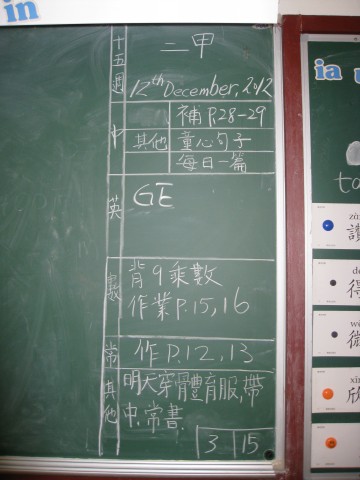 in
十五週
二甲
12th December, 2012
中
補 P.28-29
其他
童心句子
每日一篇
英
GE
數
背9乘數
作業 P.15,16
常
作 P.12,13
其他
明天穿體育服,帶
中.常書.
3 15
ia
得
微
欣